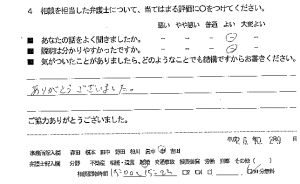 4 相談を担当した弁護士について、当てはまる評価に○をつけてください。
悪い やや悪い 普通 よい 大変よい
■ あなたの話をよく聞きましたか。
■ 説明は分かりやすかったですか。
■ 気がついたことがありましたら、どのようなことでも結構ですからお書きください。
ありがとうございました。
ご協力ありがとうございました。
平成
事務局記入欄
弁護士記入欄 分野 不動産 相続・遺言 離婚 交通事故 労働 刑事 その他
相談時間 15:00~15:22